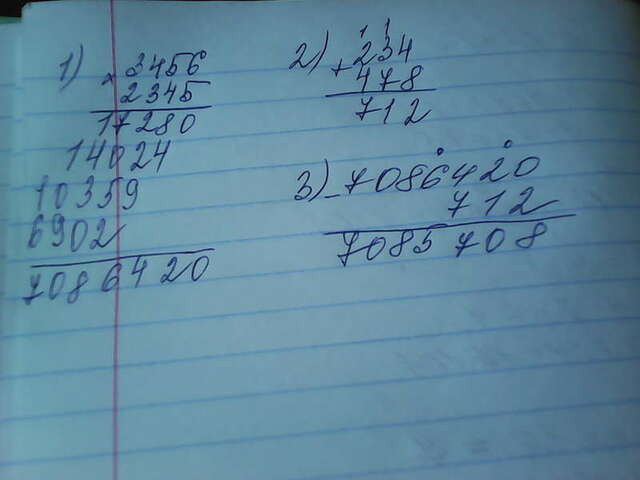 1) × 3456
2345
17280
14024
10359
6902
7086420
2) 1 1
+ 234
478
712
3) - 7086420
712
7085708